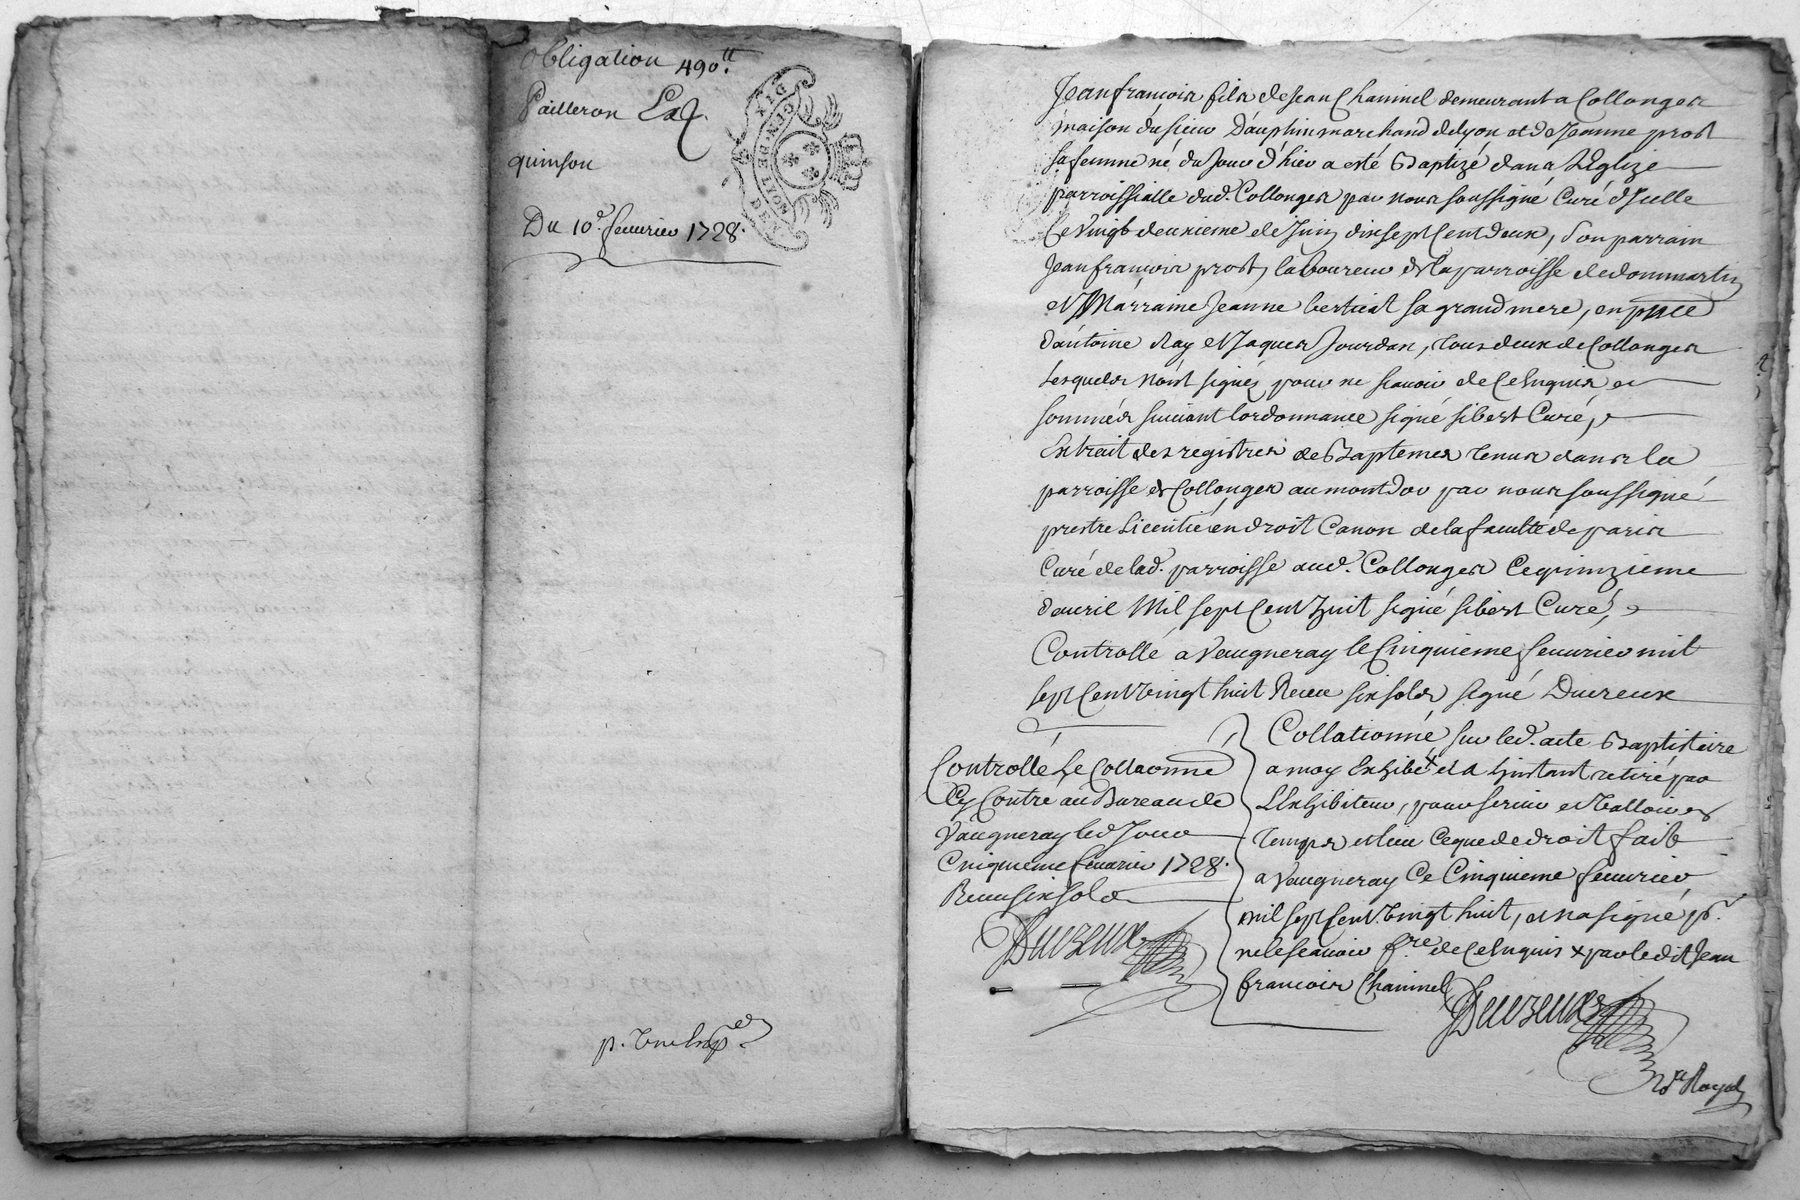 Obligation 490ᵗᵗ.
Pailleron
quinson
Du 10ᵉ. feuurier 1728.
GEN. DE LYON
Jean françois fils de Jean Chaninel demeurant a Collonges
maison du sieur Dauphin marchand de lyon et de Jeanne prost
sa femme né du Jour d'hier a esté Baptizé dans L'Eglize
parroissialle dud. Collonges par nous soussigné Curé d'Icelle
Le Vingt deuxieme de Juin dix sept Cent deux, son parrain
Jean françois prost, laboureur de la parroisse de dommartin
et Marraine Jeanne bertiet sa grand mere, en pnce
d'antoine Ray et Jaques Jourdan, tous deux de Collonges
Lesquels n'ont signés pour ne scauoir de Ce Enquis et
sommés suiuant lordonnance signé sibert Curé,
Extrait des registres de Baptemes tenus dans la
parroisse de Collonges au montdor par nous soussigné
prestre Licentié en droit Canon de la faculté de paris
Curé de lad. parroisse aud. Collonges Ce quinzieme
d'auril Mil sept Cent huit signé sibert Curé,
Controllé a Vaugneray le Cinquieme feuurier mil
sept Cent Vingt huit Receu six sols signé Ducreux
Controllé Le Collaonné
Cy Contre au Bureau de
Vaugneray led Jour
Cinquieme feuurier 1728.
Receu six sols
Ducreux
Collationné sur led. acte Baptistaire
a moy Exhibé et a Linstant retiré par
LExhibiteur, pour seruir et Valloir es
temps et lieu Ce que de droit fait
a Vaugneray Ce Cinquieme feuurier
mil sept Cent Vingt huit, et na signé pʳ.
ne le scauoir fʳᵉ de Ce Enquis x par ledit Jean
francois Chaninel
Ducreux
Nʳᵉ Royal